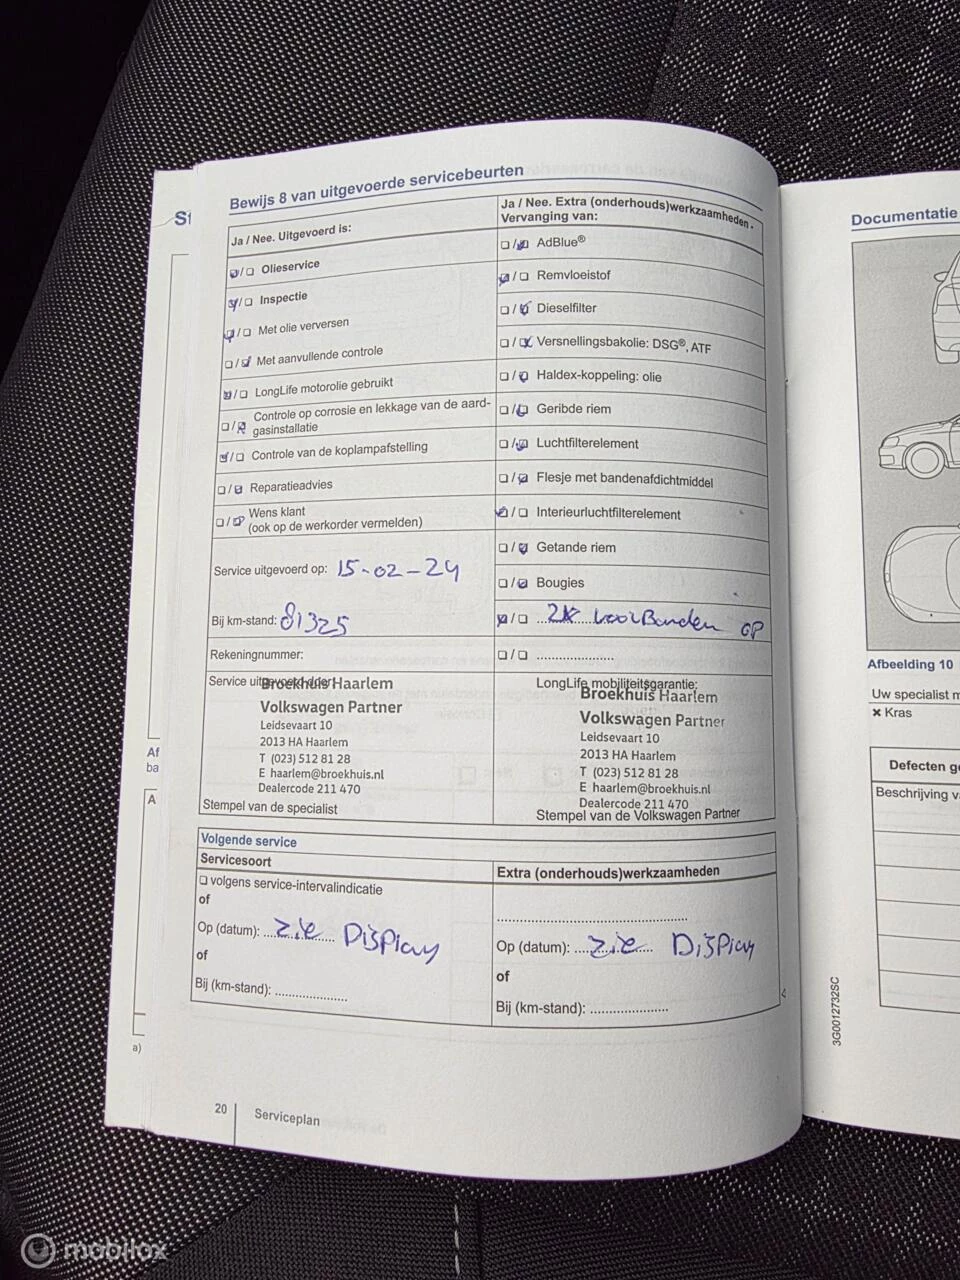 St
Bewijs 8 van uitgevoerde servicebeurten
Ja / Nee. Uitgevoerd is:
☑/☐ Olieservice
☑/☐ Inspectie
☑/☐ Met olie verversen
☐/☑ Met aanvullende controle
☑/☐ LongLife motorolie gebruikt
☐/☑ Controle op corrosie en lekkage van de aard-
gasinstallatie
☑/☐ Controle van de koplampafstelling
☐/☑ Reparatieadvies
☐/☑ Wens klant
(ook op de werkorder vermelden)
Service uitgevoerd op: 15-02-24
Bij km-stand: 81325
Rekeningnummer:
Service uitgevoerd door:
Broekhuis Haarlem
Volkswagen Partner
Leidsevaart 10
2013 HA Haarlem
T (023) 512 81 28
E haarlem@broekhuis.nl
Dealercode 211 470
Stempel van de specialist
Ja / Nee. Extra (onderhouds)werkzaamheden -
Vervanging van:
☐/☑ AdBlue®
☑/☐ Remvloeistof
☐/☑ Dieselfilter
☐/☑ Versnellingsbakolie: DSG®, ATF
☐/☑ Haldex-koppeling: olie
☐/☑ Geribde riem
☐/☑ Luchtfilterelement
☐/☑ Flesje met bandenafdichtmiddel
☑/☐ Interieurluchtfilterelement
☐/☑ Getande riem
☐/☑ Bougies
☑/☐ 2x voorBanden GP
☐/☐ .....................
LongLife mobiliteitsgarantie:
Broekhuis Haarlem
Volkswagen Partner
Leidsevaart 10
2013 HA Haarlem
T (023) 512 81 28
E haarlem@broekhuis.nl
Dealercode 211 470
Stempel van de Volkswagen Partner
Volgende service
Servicesoort
☐ volgens service-intervalindicatie
of
Op (datum): zie Display
of
Bij (km-stand): ....................
Extra (onderhouds)werkzaamheden
Op (datum): zie Display
of
Bij (km-stand): .....................
20 Serviceplan
Af
ba
A
a)
Documentatie
Afbeelding 10
Uw specialist m
× Kras
Defecten ge
Beschrijving va
3G0012732SC
mobilox